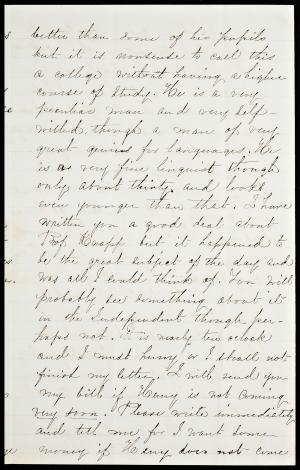 better than some of his pupils
but it is nonsense to call this
a college without having a higher
course of study. He is a very
peculiar man and very self-
willed though a man of very
great genius for languages. He
is a very fine linguist though
only about thirty and looks
even younger than that. I have
written you a good deal about
Prof Knapp but it happened to
be the great subject of the day and
was all I could think of. You will
probably see something about it
in the Independent though per-
haps not. It is nearly ten o'clock
and I must hurry or I shall not
finish my letter. I will send you
my bill if Henry is not coming
very soon. Please write immediately
and tell me for I want some
money if Henry does not come